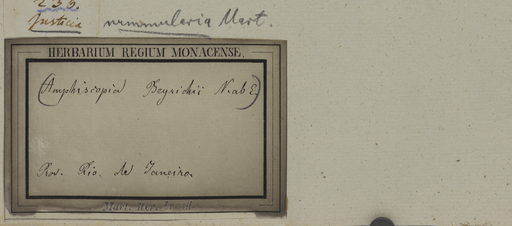 236
Justicia nummularia Mart.
HERBARIUM REGIUM MONACENSE.
(Amphiscopia Beyrichii N. ab E.)
Prov. Rio de Janeiro.
Mart. Herb. Brasil.